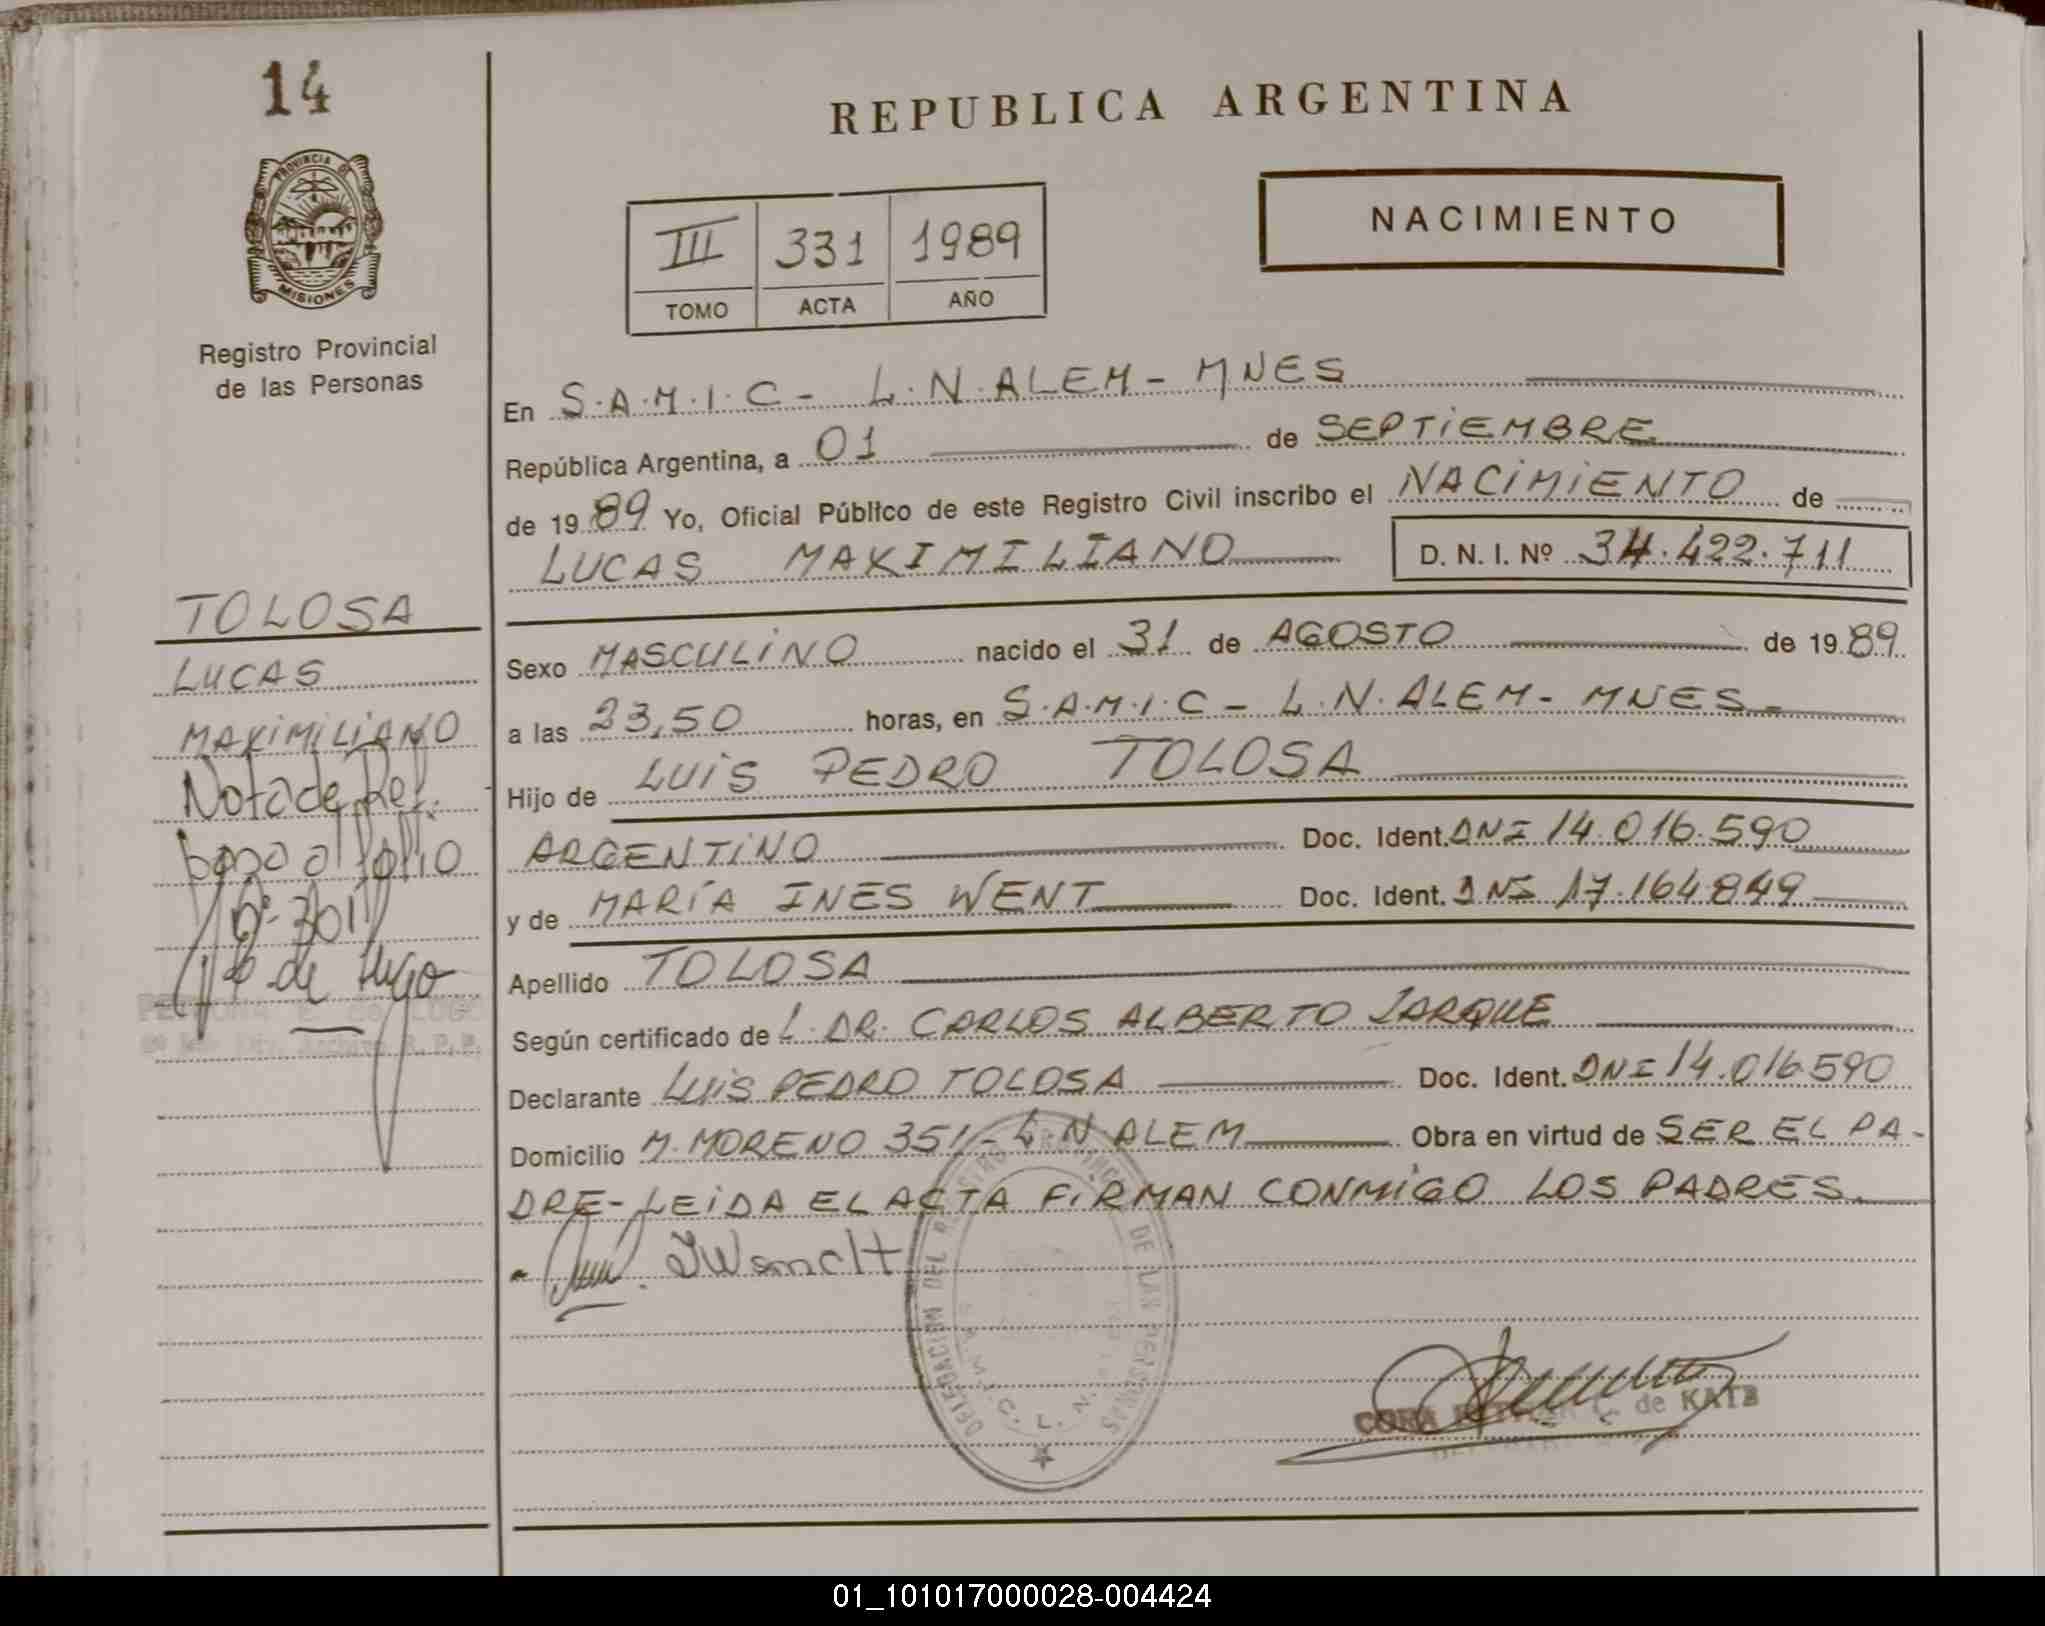 14
REPUBLICA ARGENTINA
PROVINCIA DE
MISIONES
Registro Provincial
de las Personas
NACIMIENTO
III 331 1989
TOMO ACTA AÑO
En S.A.M.I.C - L.N.ALEM - MNES
República Argentina, a 01 de SEPTIEMBRE
de 1989 Yo, Oficial Público de este Registro Civil inscribo el NACIMIENTO de
LUCAS MAXIMILIANO D. N. I. Nº 34.422.711
TOLOSA
LUCAS
MAXIMILIANO
Nota de Ref.
paso al folio
Nº 301
de Lugo
Sexo MASCULINO nacido el 31 de AGOSTO de 1989
a las 23,50 horas, en S.A.M.I.C - L.N.ALEM - MNES -
Hijo de LUIS PEDRO TOLOSA
ARGENTINO Doc. Ident. DNI 14.016.590
y de MARÍA INES WENT Doc. Ident. DNI 17.164.849
Apellido TOLOSA
Según certificado de L. DR. CARLOS ALBERTO JARQUE
Declarante LUIS PEDRO TOLOSA Doc. Ident. DNI 14.016.590
Domicilio M. MORENO 351 - L.N ALEM Obra en virtud de SER EL PA-
DRE - LEIDA EL ACTA FIRMAN CONMIGO LOS PADRES.
DELEGACION DEL REGISTRO DE LAS PERSONAS
S.A.M.I.C. L.N.
CORA de KATZ
01_101017000028-004424